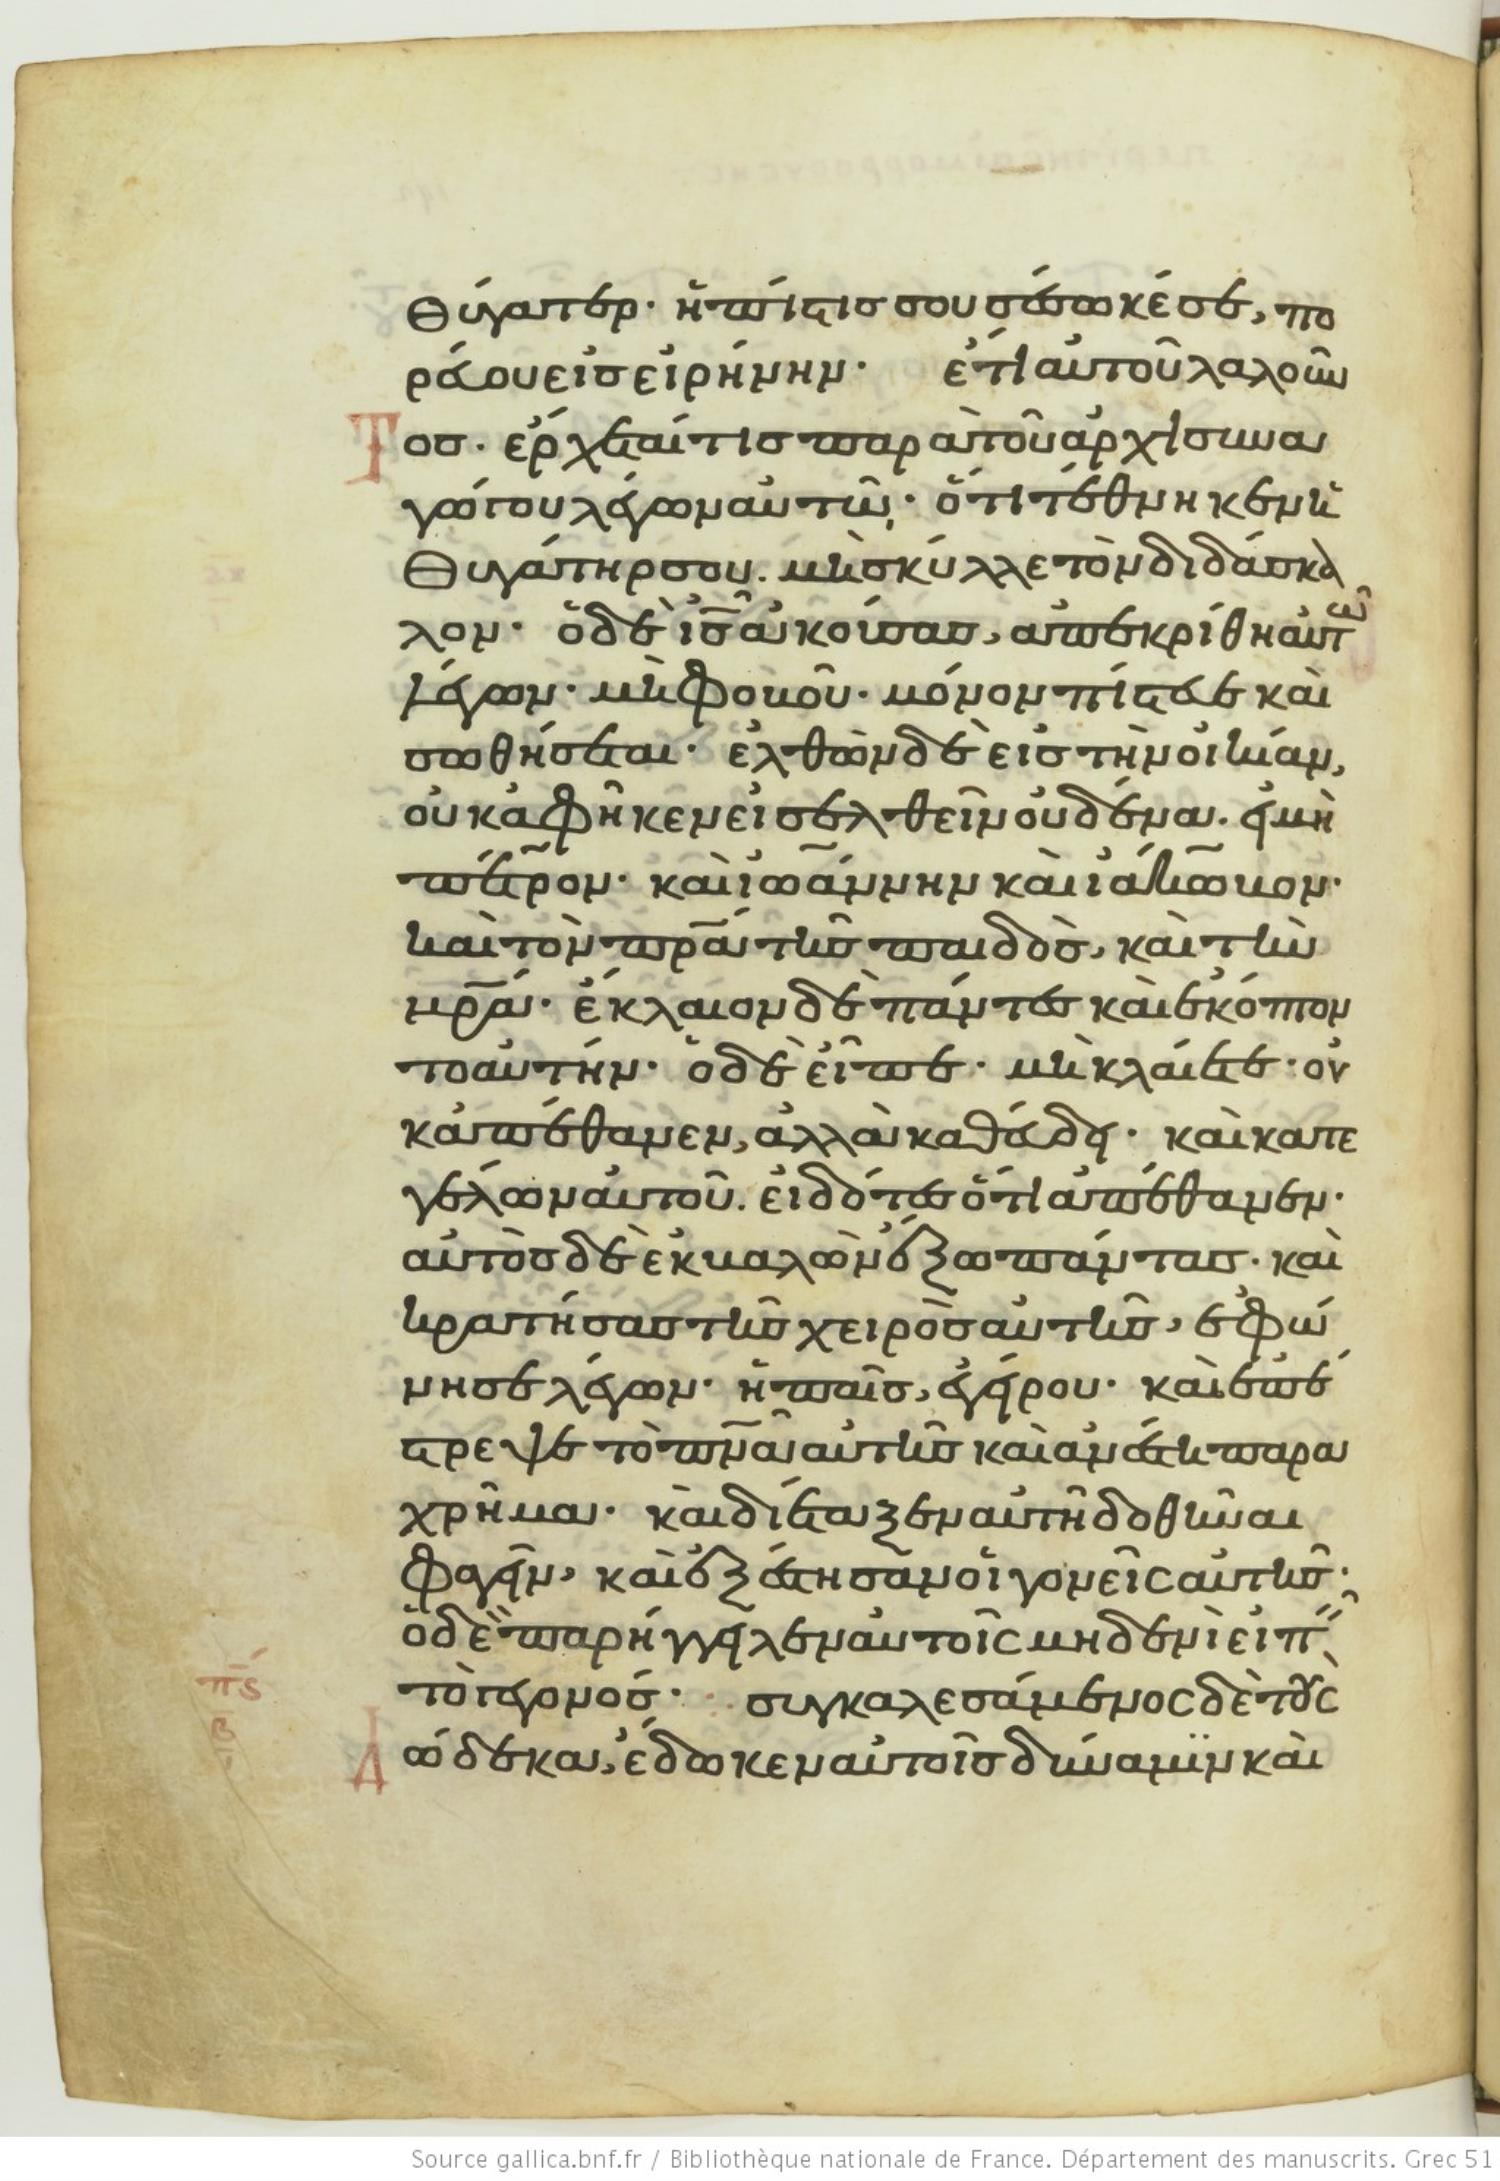 θύγατερ· ἡ πίστις σου σέσωκέ σε, πο
ρεύου εἰς εἰρήνην· ἔτι αὐτοῦ λαλοῦν
Τος· ἔρχεταί τις παρὰ τοῦ ἀρχισυνα
γώγου λέγων αὐτῷ· ὅτι τέθνηκεν ἡ
θυγάτηρ σου. μὴ σκύλλε τὸν διδάσκα
λον· ὁ δὲ ι̅ς̅ ἀκούσας, ἀπεκρίθη αὐτῶ
λέγων· μὴ φοβοῦ· μόνον πίστευε καὶ
σωθήσεται· ἐλθὼν δὲ εἰς τὴν οἰκίαν,
οὐκ ἀφῆκεν εἰσελθεῖν οὐδένα. εἰ μὴ
πέτρον· καὶ ἰωάννην καὶ ἰάκωβον·
καὶ τὸν π̅ρ̅α τῆς παιδὸς, καὶ τὴν
μ̅ρ̅α· ἔκλαιον δὲ πάντες καὶ ἐκόπτον
το αὐτήν· ὁ δὲ εἶπε· μὴ κλαίετε· οὐ
κ ἀπέθανεν, ἀλλὰ καθεύδει· καὶ κατε
γέλων αὐτοῦ. εἰδότες ὅτι ἀπέθανεν·
αὐτὸς δὲ ἐκβαλὼν ἔξω πάντας· καὶ
κρατήσας τῆς χειρὸς αὐτῆς, ἐφώ
νησε λέγων· ἡ παῖς, ἐγείρου· καὶ ἐπέ
στρεψε τὸ π̅ν̅α αὐτῆς καὶ ἀνέστη παρα
χρῆμα· καὶ διέταξεν αὐτῇ δοθῆναι
φαγεῖν, καὶ ἐξέστησαν οἱ γονεῖς αὐτῆς·
ὁ δὲ παρήγγειλεν αὐτοῖς μηδενὶ εἰπεῖν
τὸ γεγονός· συγκαλεσάμενος δὲ τοὺς
πς
β
Δώδεκα, ἔδωκεν αὐτοῖς δύναμιν καὶ
Source gallica.bnf.fr / Bibliothèque nationale de France. Département des manuscrits. Grec 51